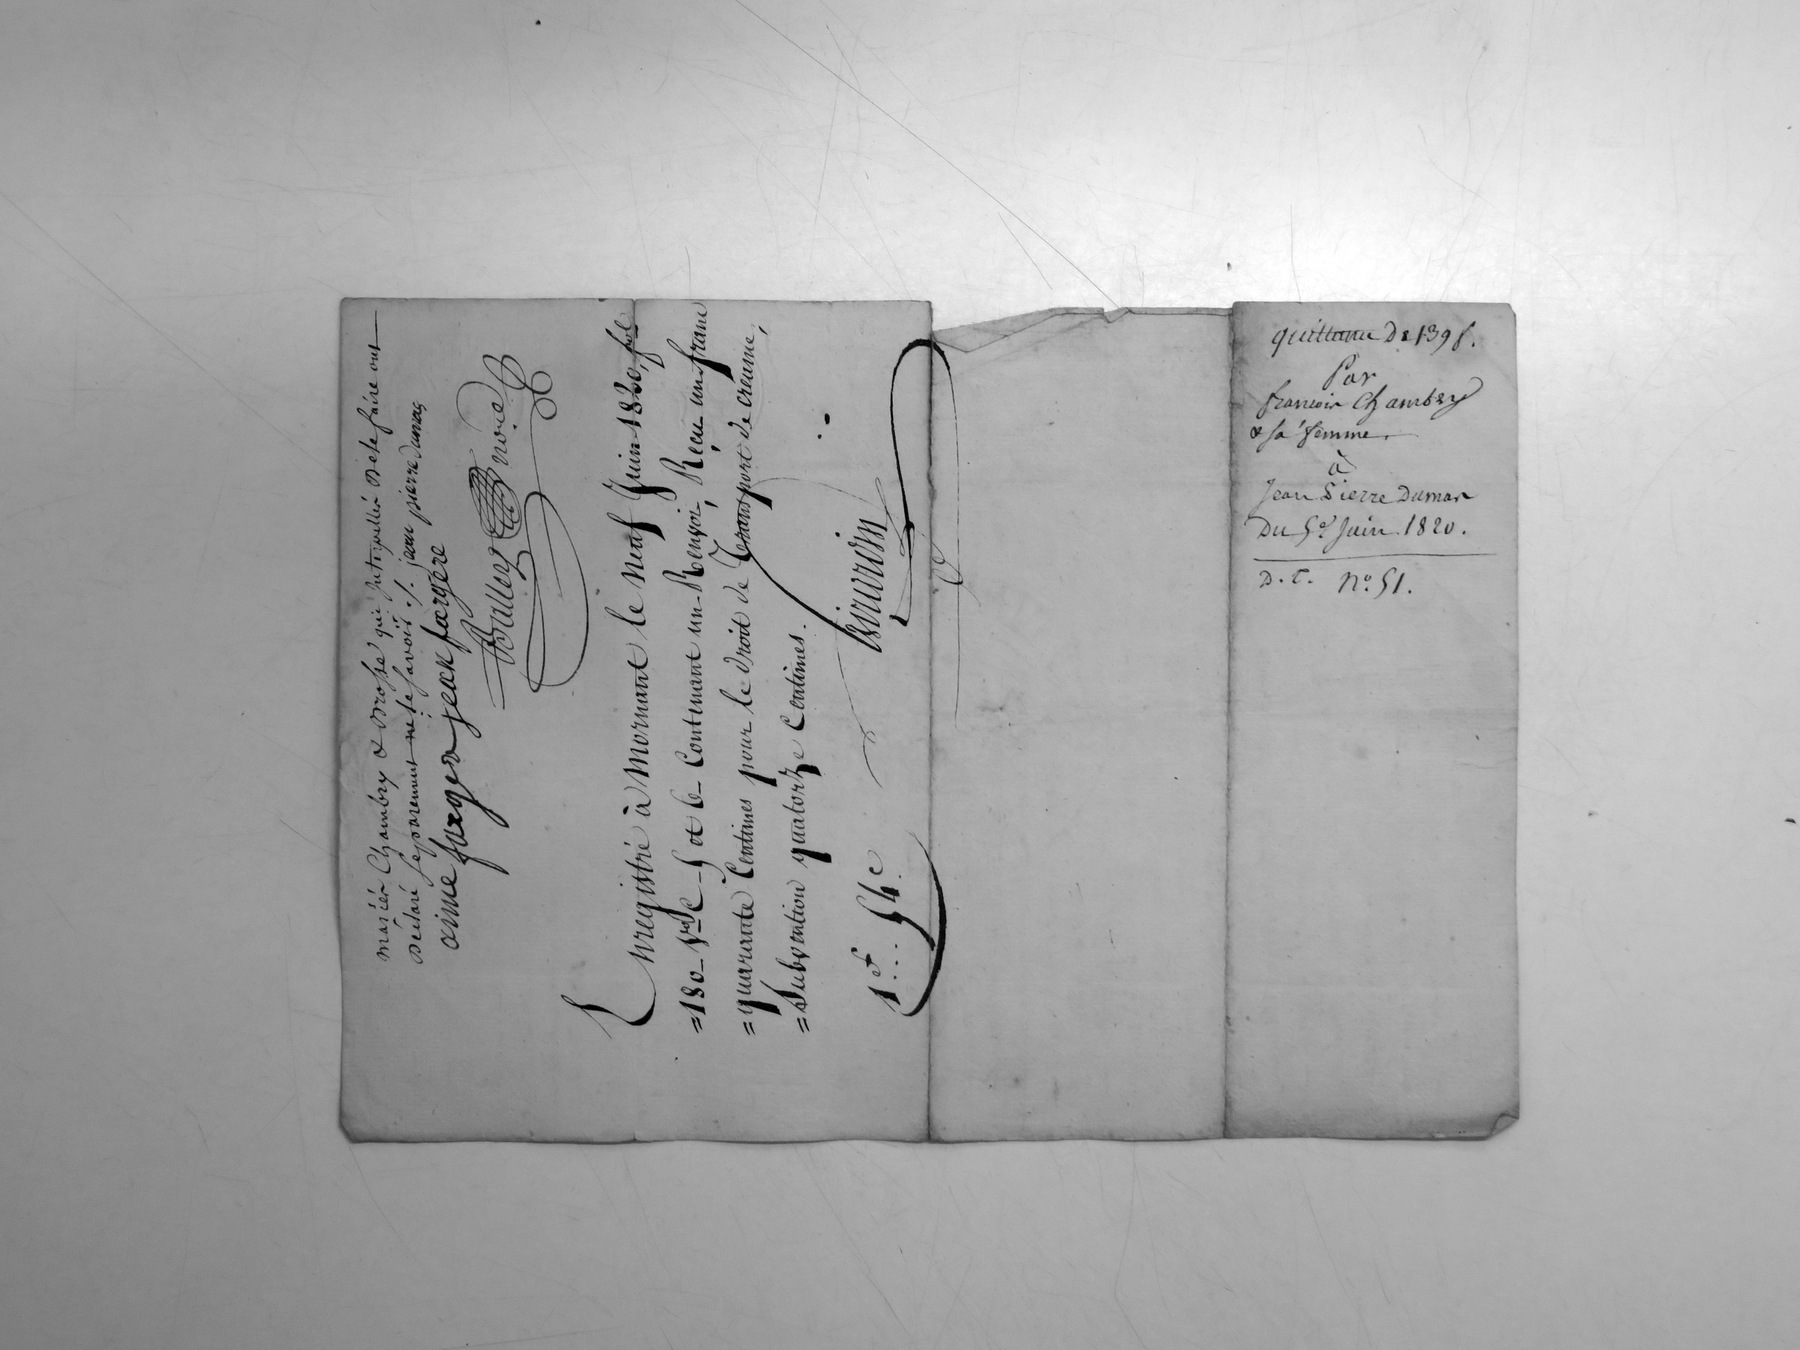 mariés Chambry & Brosse qui Interpellés de le faire ont
déclaré séparement ne le savoir ./. jean pierre dumas
aime fargere jean fargere
Boulley Nre
Enregistré à Mornant le neuf Juin 1820, fol
=180 Vso C. 5 et 6 Contenant un Renvoi, Reçu un franc
=quarante Centimes pour le droit de Transport de creance,
=Subvention quatorze Centimes.
1f... 54c
quittance De 139f.
Par
francois Chambry
& sa femme
à
Jean Pierre Dumas
Du 5d. Juin 1820.
D. C. No. 51.